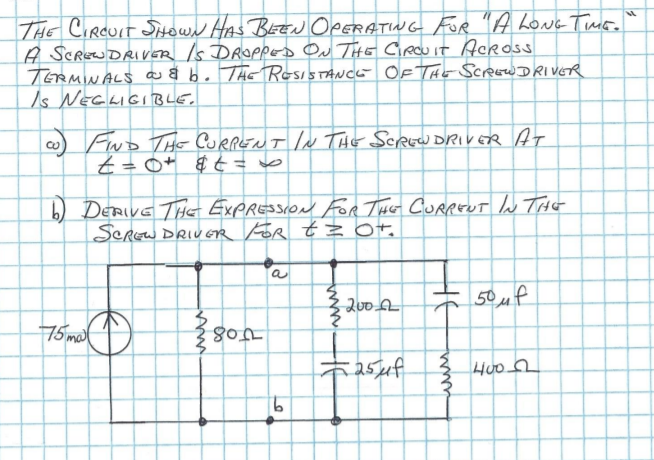 THE CIRCUIT SHOWN HAS BEEN OPERATING FOR "A LONG TIME."
A SCREWDRIVER IS DROPPED ON THE CIRCUIT ACROSS
TERMINALS a & b. THE RESISTANCE OF THE SCREWDRIVER
IS NEGLIGIBLE.
a) FIND THE CURRENT IN THE SCREWDRIVER AT
t = 0⁺ & t = ∞
b) DERIVE THE EXPRESSION FOR THE CURRENT IN THE
SCREWDRIVER FOR t ≥ 0⁺.
a
200 Ω
50 μf
75 ma
80 Ω
25 μf
400 Ω
b